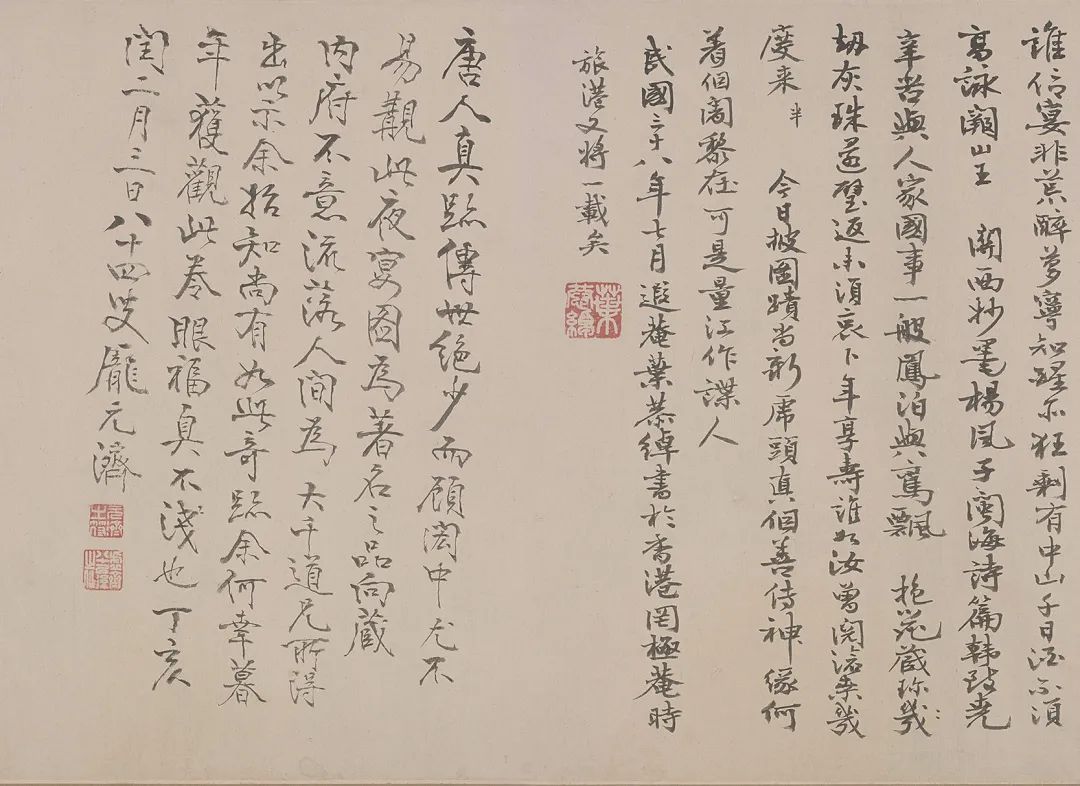 誰信宴非荒醉夢寧知醒不狂剩有中山千日酒不須
高詠獨山王 關西妙墨楊風子閩海詩篇韓致堯
辛苦與人家國事一般鳳泊與鸞飄 抱蔵珎幾
劫灰珠還璧返未須哀卜年享壽誰如汝曾閱滄桑幾
廢来 半 今日披圖蹟尚新虎頭真個善傳神緣何
着個闍黎在可是量江作諜人
民國三十八年七月遐菴葉恭綽書於香港罔極菴時
旅港又將一載矣
葉恭綽
唐人真跡傳世絕少而顧閎中尤不
易覯此夜宴圖為著名之品向蔵
內府不意流落人間為 大千道兄所得
出以示余始知尚有如此奇跡余何幸暮
年獲觀此卷眼福真不淺也 丁亥
閏二月三日八十四叟龐元濟